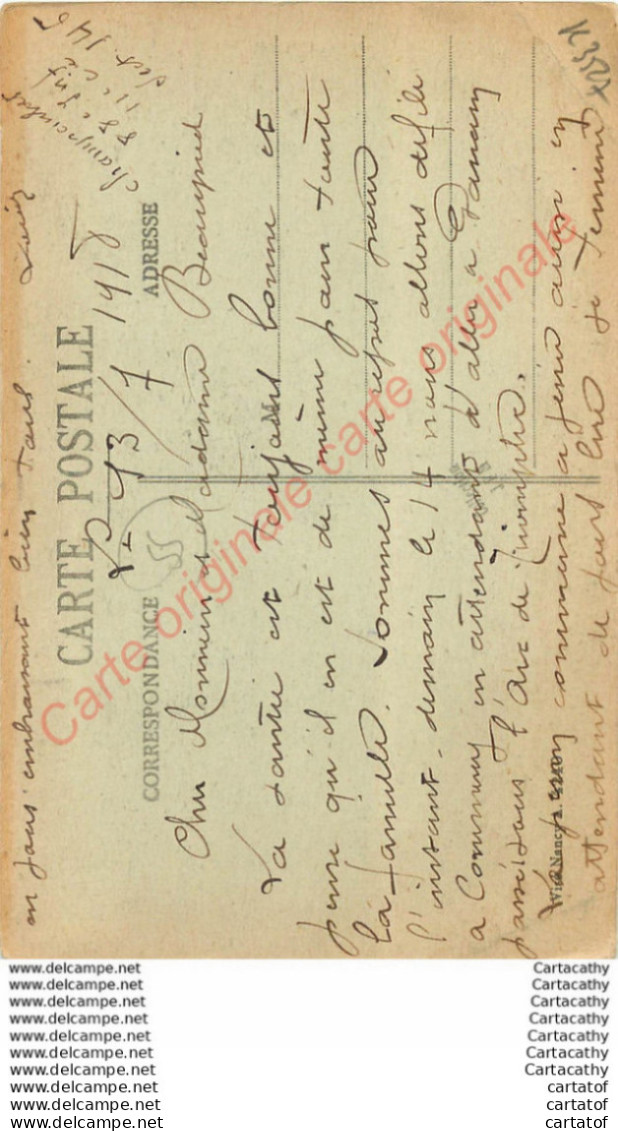 CARTE POSTALE
CORRESPONDANCE
ADRESSE
Le 13/7 1918
Cher Monsieur et Madame Beaupied
La santé est toujours bonne et
pense qu'il en est de même pour toute
la famille. Sommes au repos pour
l'instant. demain le 14 nous allons défilé
a Commercy en attendant d'aller a
passé sous l'Arc de Triomphe.
commence a jénir aussi. en
attendant de vous lire je termine
en vous embrassant bien tous. Louis
Champouchet
88e
11e Cie
Sect. 148
55
M
Visé Nancy
Carte originale carte originale carte originale
www.delcampe.net Cartacathy
www.delcampe.net Cartacathy
www.delcampe.net Cartacathy
www.delcampe.net Cartacathy
www.delcampe.net Cartacathy
www.delcampe.net Cartacathy
www.delcampe.net Cartacathy
www.delcampe.net cartatof
www.delcampe.net cartatof
www.delcampe.net cartatof